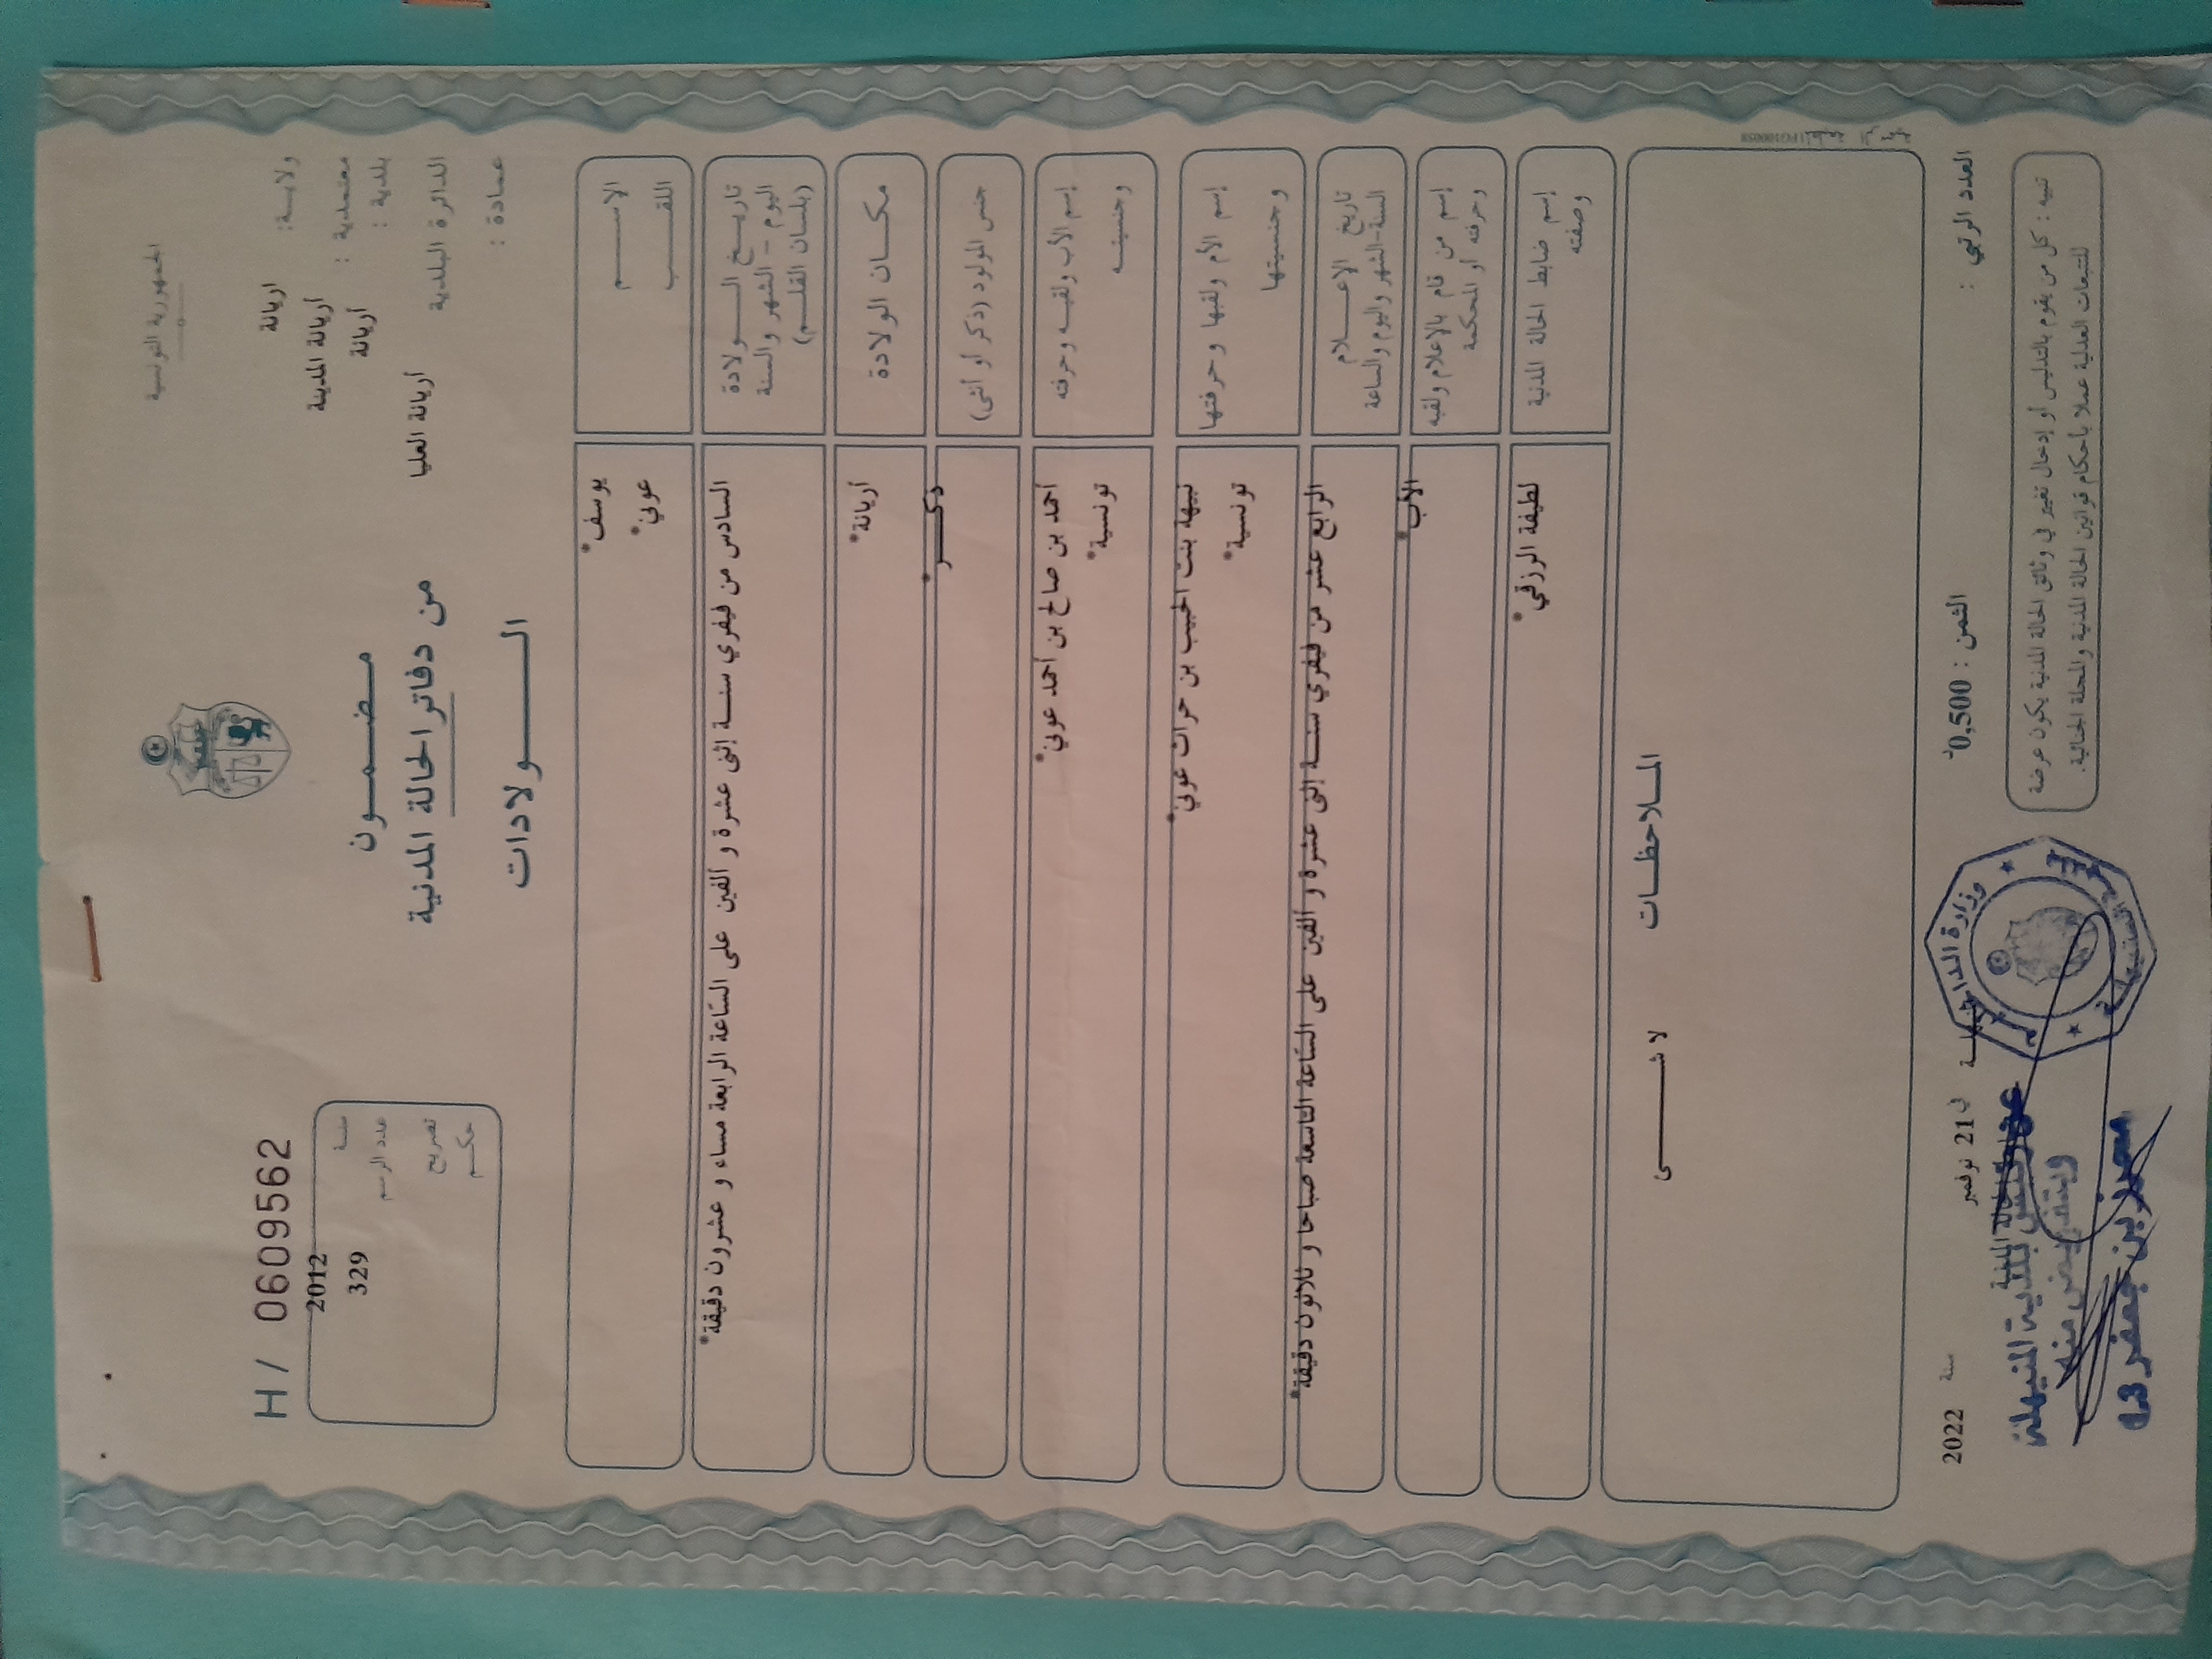 الجمهورية التونسية
H / 0609562
ولايـة: اريانة
معتمدية : أريانة المدينة
بلدية : أريانة
الدائرة البلدية أريانة العليا
عمادة :
مـضـمـون
من دفاتر الحالة المدنية
الـولادات
سنـة 2012
عدد الرسم 329
تصريح
حكـم
الاســـم يوسف*
اللقـــب عوني*
تاريـــخ الـــولادة
اليوم - الشهر والسنة
(بلسان القلـم)
السادس من فيفري سنـة إثنى عشرة و ألفين على السّاعة الرابعة مساء و عشرون دقيقة*
مكـــان الولادة أريانة*
جنس المولود (ذكر أو أنثى) ذكــر*
إسم الأب ولقبـه وحرفته أحمد بن صالح بن أحمد عوني*
وجنسيتـــه تونسية*
إسم الأم ولقبها وحرفتها نبيهة بنت الحبيب بن حراث عوني*
وجنسيتها تونسية*
تاريخ الإعـــلام
السنة-الشهر واليوم والساعة
الرابع عشر من فيفري سنـة إثنى عشرة و ألفين على السّاعة التاسعة صباحا و ثلاثون دقيقة*
إسم من قام بالإعلام ولقبه
وحرفته أو المحكمة
الأب*
إسم ضابط الحالة المدنية
وصفته
لطيفة الرزقي*
المـلاحظـات
لا شـــــئ
العدد الرتبي :
الثمن : 0,500د
في 21 نوفمبر سنة 2022
تنبيه : كل من يقوم بالتدليس أو إدخال تغيير في وثائق الحالة المدنية يكون عرضة
للتتبعات العدلية عملا بأحكام قوانين الحالة المدنية والمجلة الجنائية.
وزارة الداخلية
الحالة المدنية
بلدية المنيهلة
وبتفويض منه
معز بن جعفر